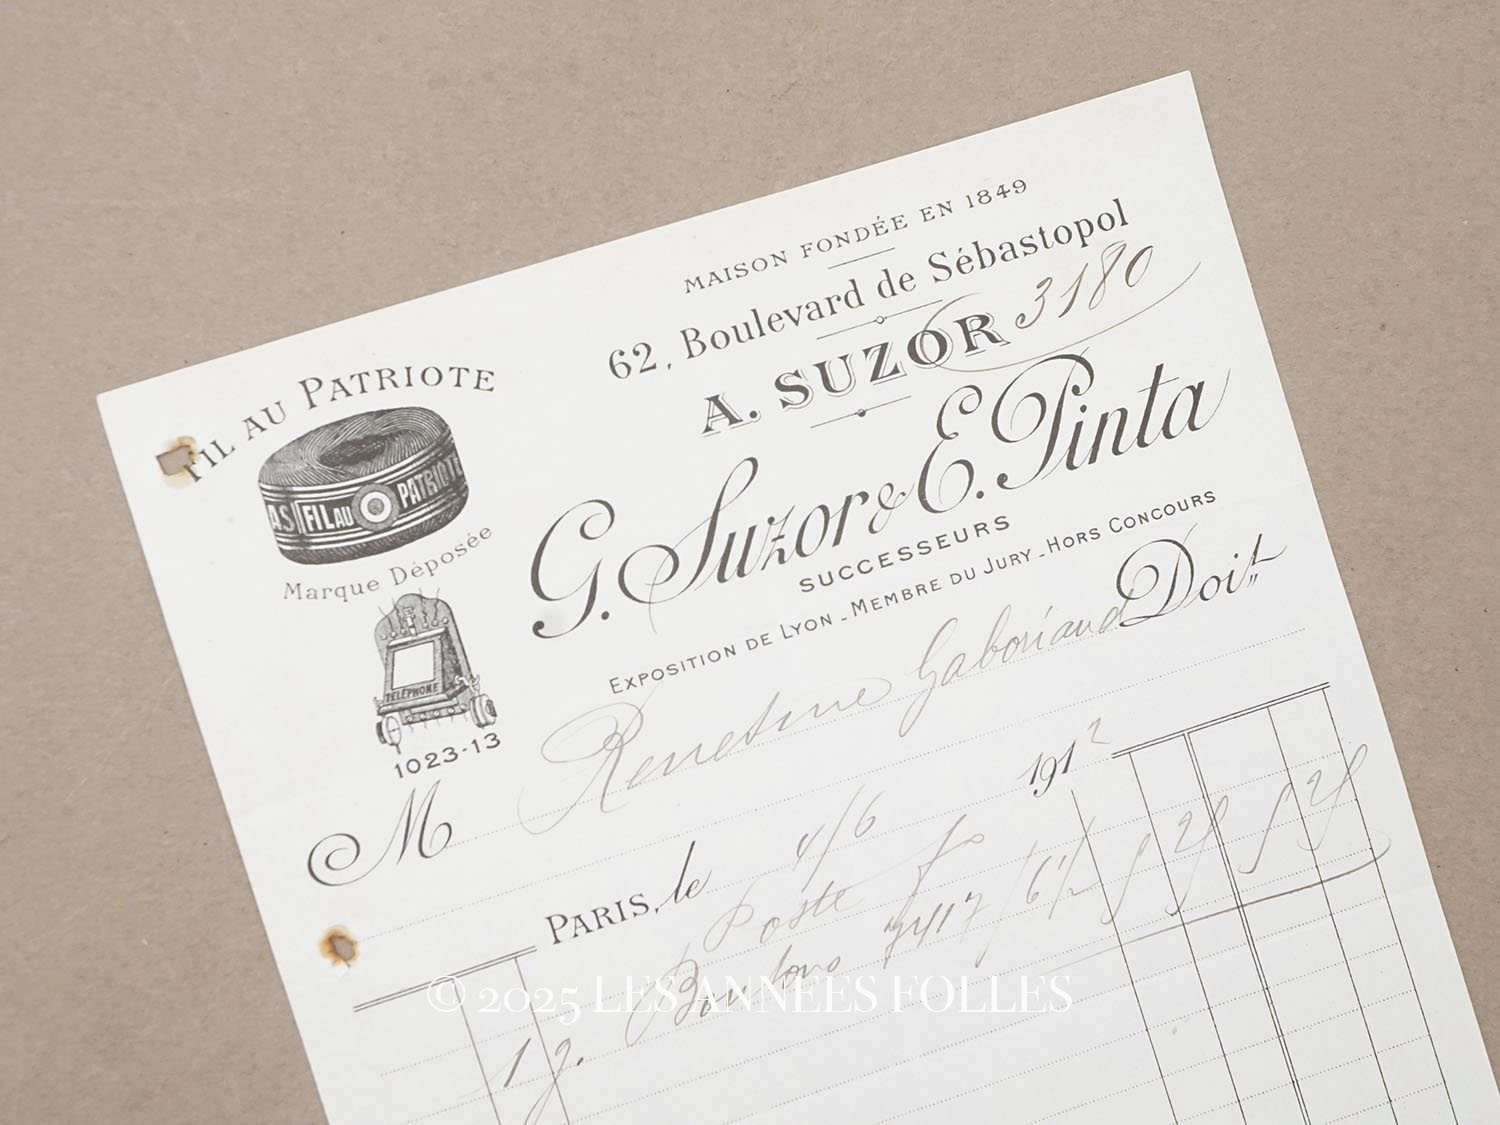 MAISON FONDÉE EN 1849
62, Boulevard de Sébastopol
A. SUZOR
3180
G. Suzor & E. Pinta
SUCCESSEURS
EXPOSITION DE LYON - MEMBRE DU JURY - HORS CONCOURS
FIL AU PATRIOTE
AS FIL AU PATRIOTE
Marque Déposée
TÉLÉPHONE
1023-13
Doit
M Gaboriaud
PARIS, le 4/6 1912
Poste
1 g. Boutons 7417 / 6 1/2
© 2025 LES ANNÉES FOLLES